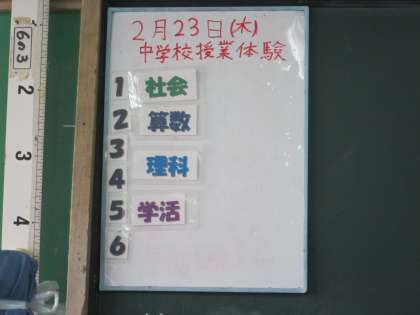 6の3
2
3
4
2月23日(木)
中学校授業体験
1 社会
2 算数
3
4 理科
5 学活
6